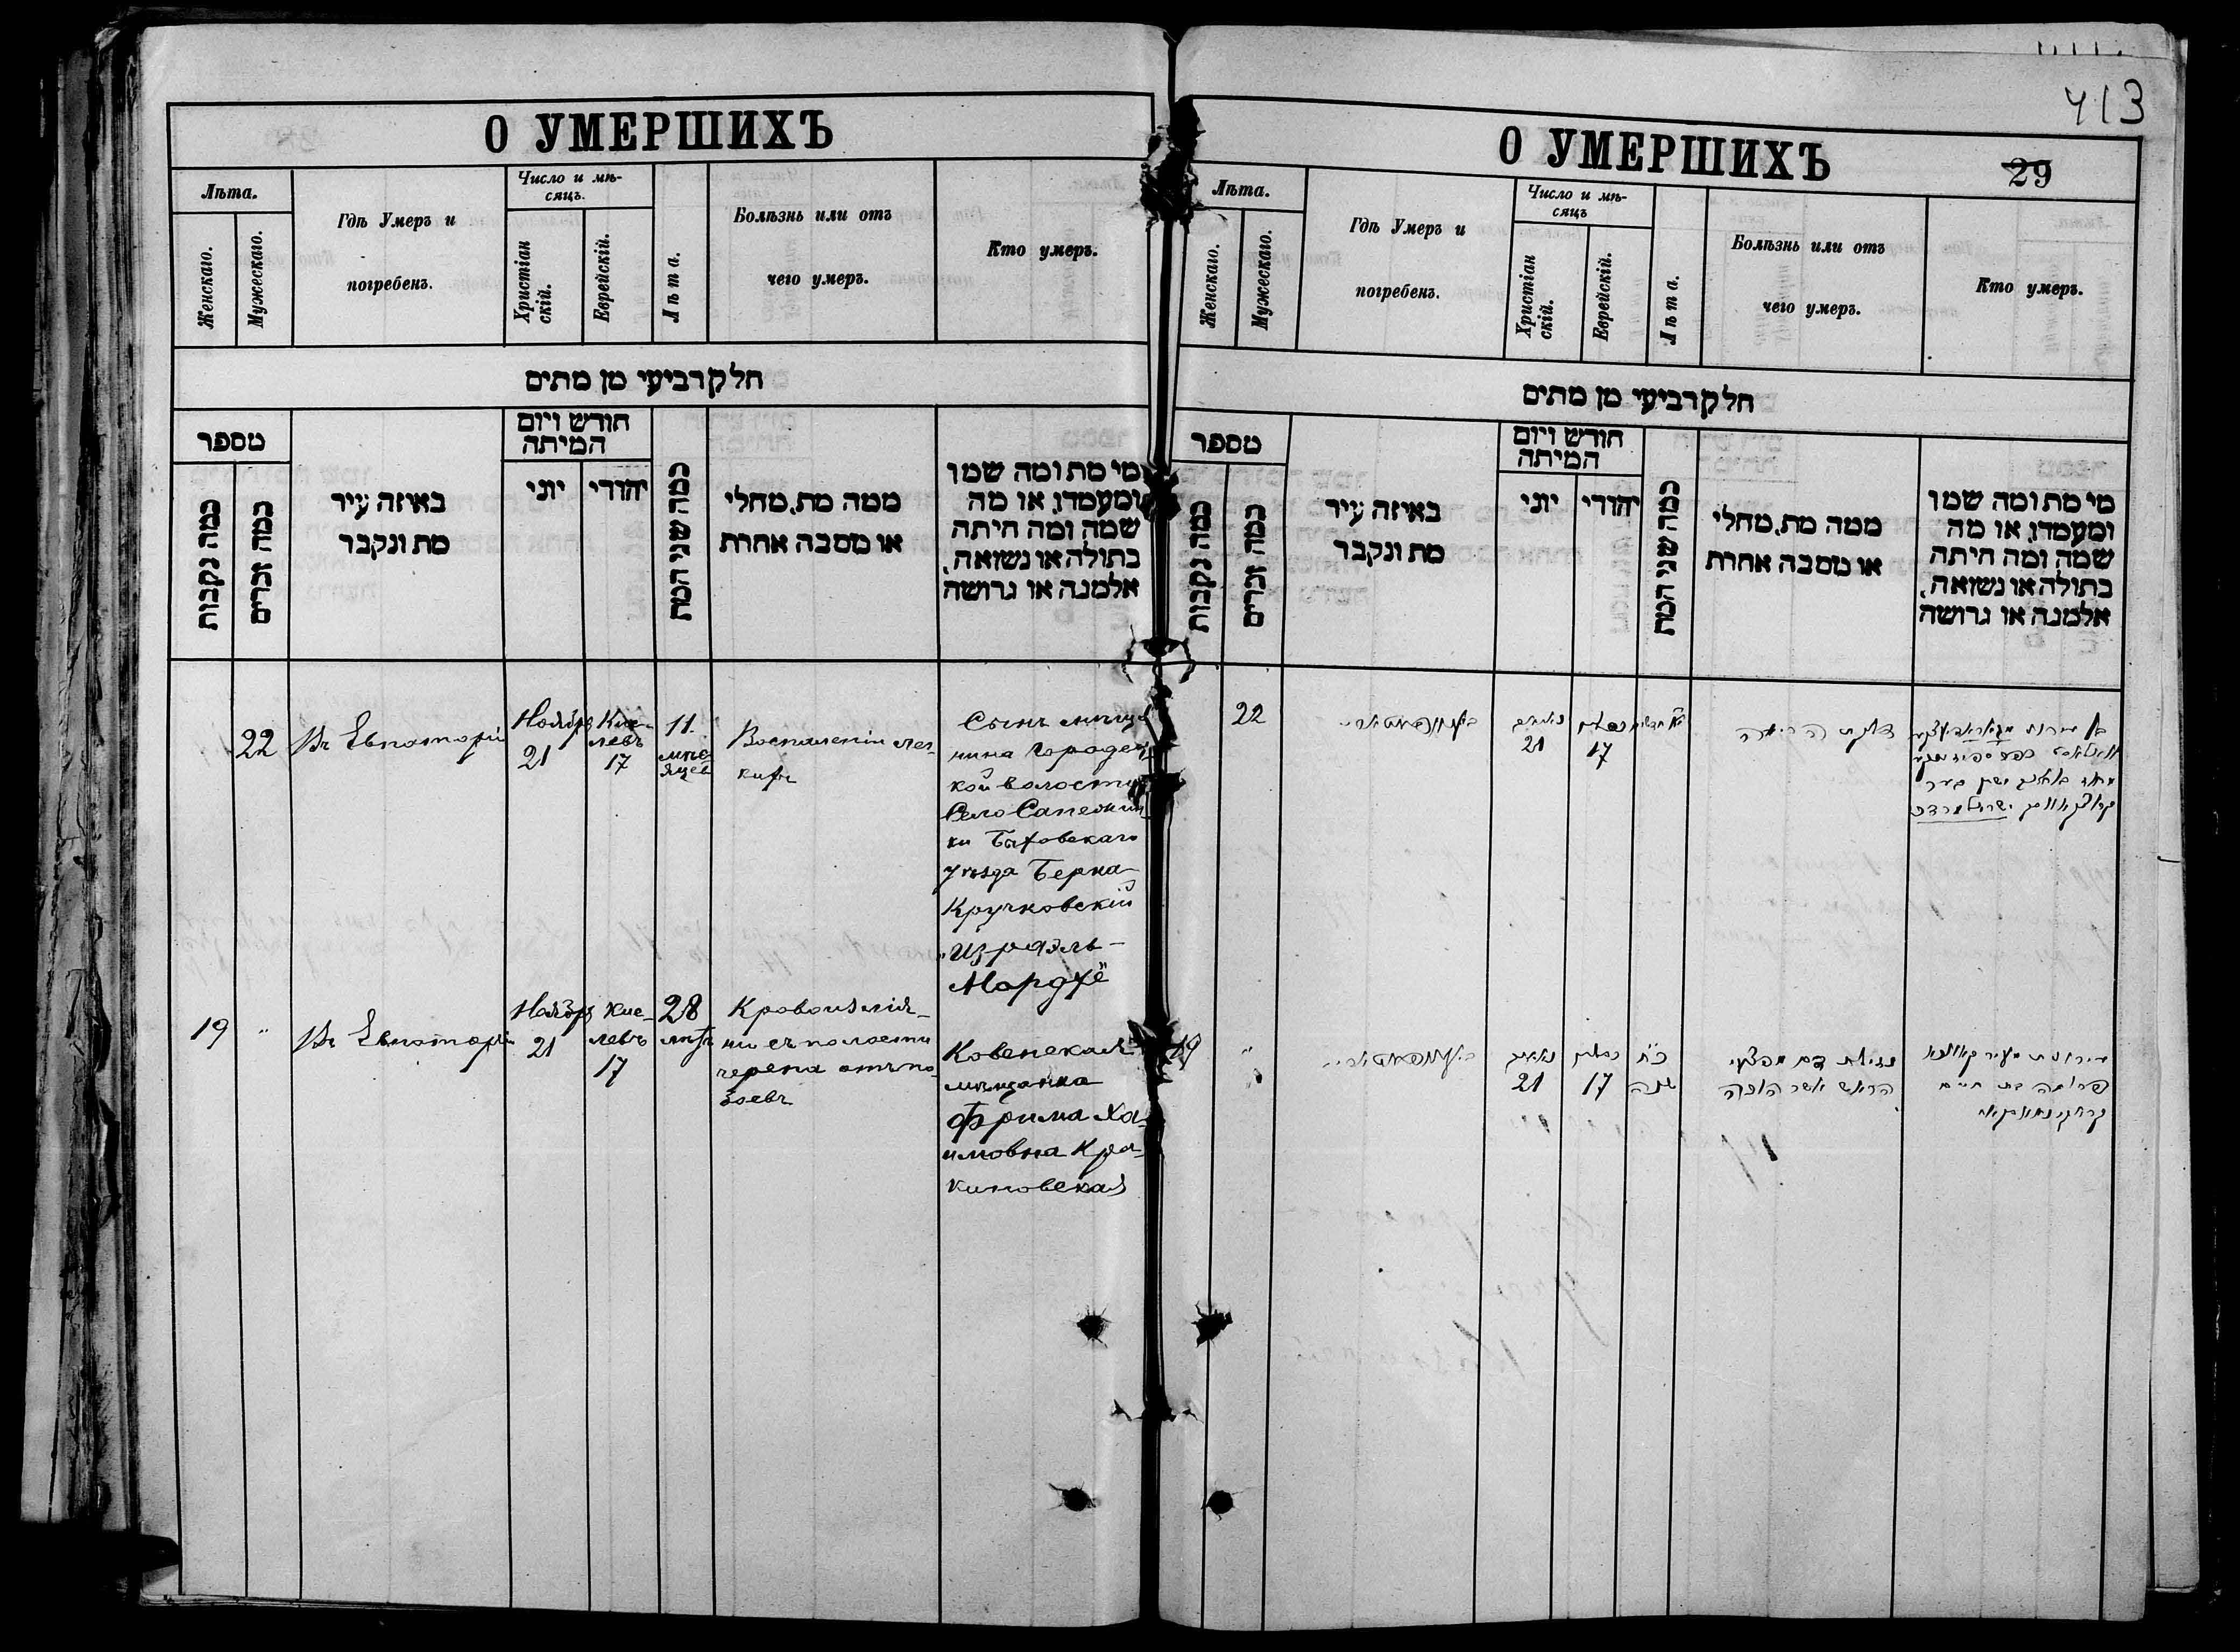 413
О УМЕРШИХЪ
Лѣта.
Женскаго.
Мужескаго.
Гдѣ Умеръ и
погребенъ.
Число и мѣ-
сяцъ.
Христіан
скій.
Еврейскій.
Лѣта.
Болѣзнь или отъ
чего умеръ.
Кто умеръ.
חלק רביעי מן מתים
מספר
כמה נקבות
כמה זכרים
באיזה עיר
מת ונקבר
חודש ויום
המיתה
יוני
יהודי
כמה שני המת
ממה מת, מחלי
או מסבה אחרת
מי מת ומה שמו
ומעמדו, או מה
שמה ומה היתה
בתולה או נשואה,
אלמנה או גרושה
22
Въ Евпаторіи
Ноябрь
21
Кис-
левъ
17
11.
мѣс-
яцев
Воспаленіи лег-
кихъ
Сынъ мѣща
нина Городец
кой волости
Село Сапежин
ки Быховскаго
уѣзда Берка
Кручковскій
"Израэль-
Мордхе"
19
"
Въ Евпаторіи
Ноябрь
21
Кис-
левъ
17
28
лѣтъ
Кровоизлія-
ни съ полости
черепа отъ по-
боевъ
Ковенская
мѣщанка
Фрима Ха-
имовна Кра-
киновская
О УМЕРШИХЪ
29
Лѣта.
Женскаго.
Мужескаго.
Гдѣ Умеръ и
погребенъ.
Число и мѣ-
сяцъ
Христіан
скій.
Еврейскій.
Лѣта.
Болѣзнь или отъ
чего умеръ.
Кто умеръ.
חלק רביעי מן מתים
מספר
כמה נקבות
כמה זכרים
באיזה עיר
מת ונקבר
חודש ויום
המיתה
יוני
יהודי
כמה שני המת
ממה מת, מחלי
או מסבה אחרת
מי מת ומה שמו
ומעמדו, או מה
שמה ומה היתה
בתולה או נשואה,
אלמנה או גרושה
22
21
17
דלקת הריאה
ישראל מרדכי
19
"
21
כסליו
17
כ"ח
שנה
נזילת דם מפצעי
הראש אשר הוכה
עירונית מעיר קאוונא
פרומה בת חיים